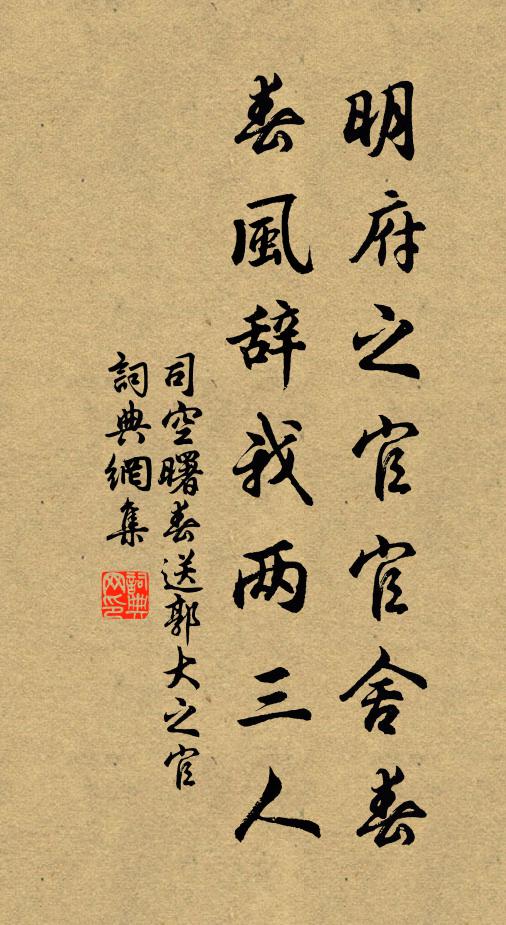 明府之官官舍春
春風辞我两三人
司空曙春送郭大之官
詞典網集
詞典
网印